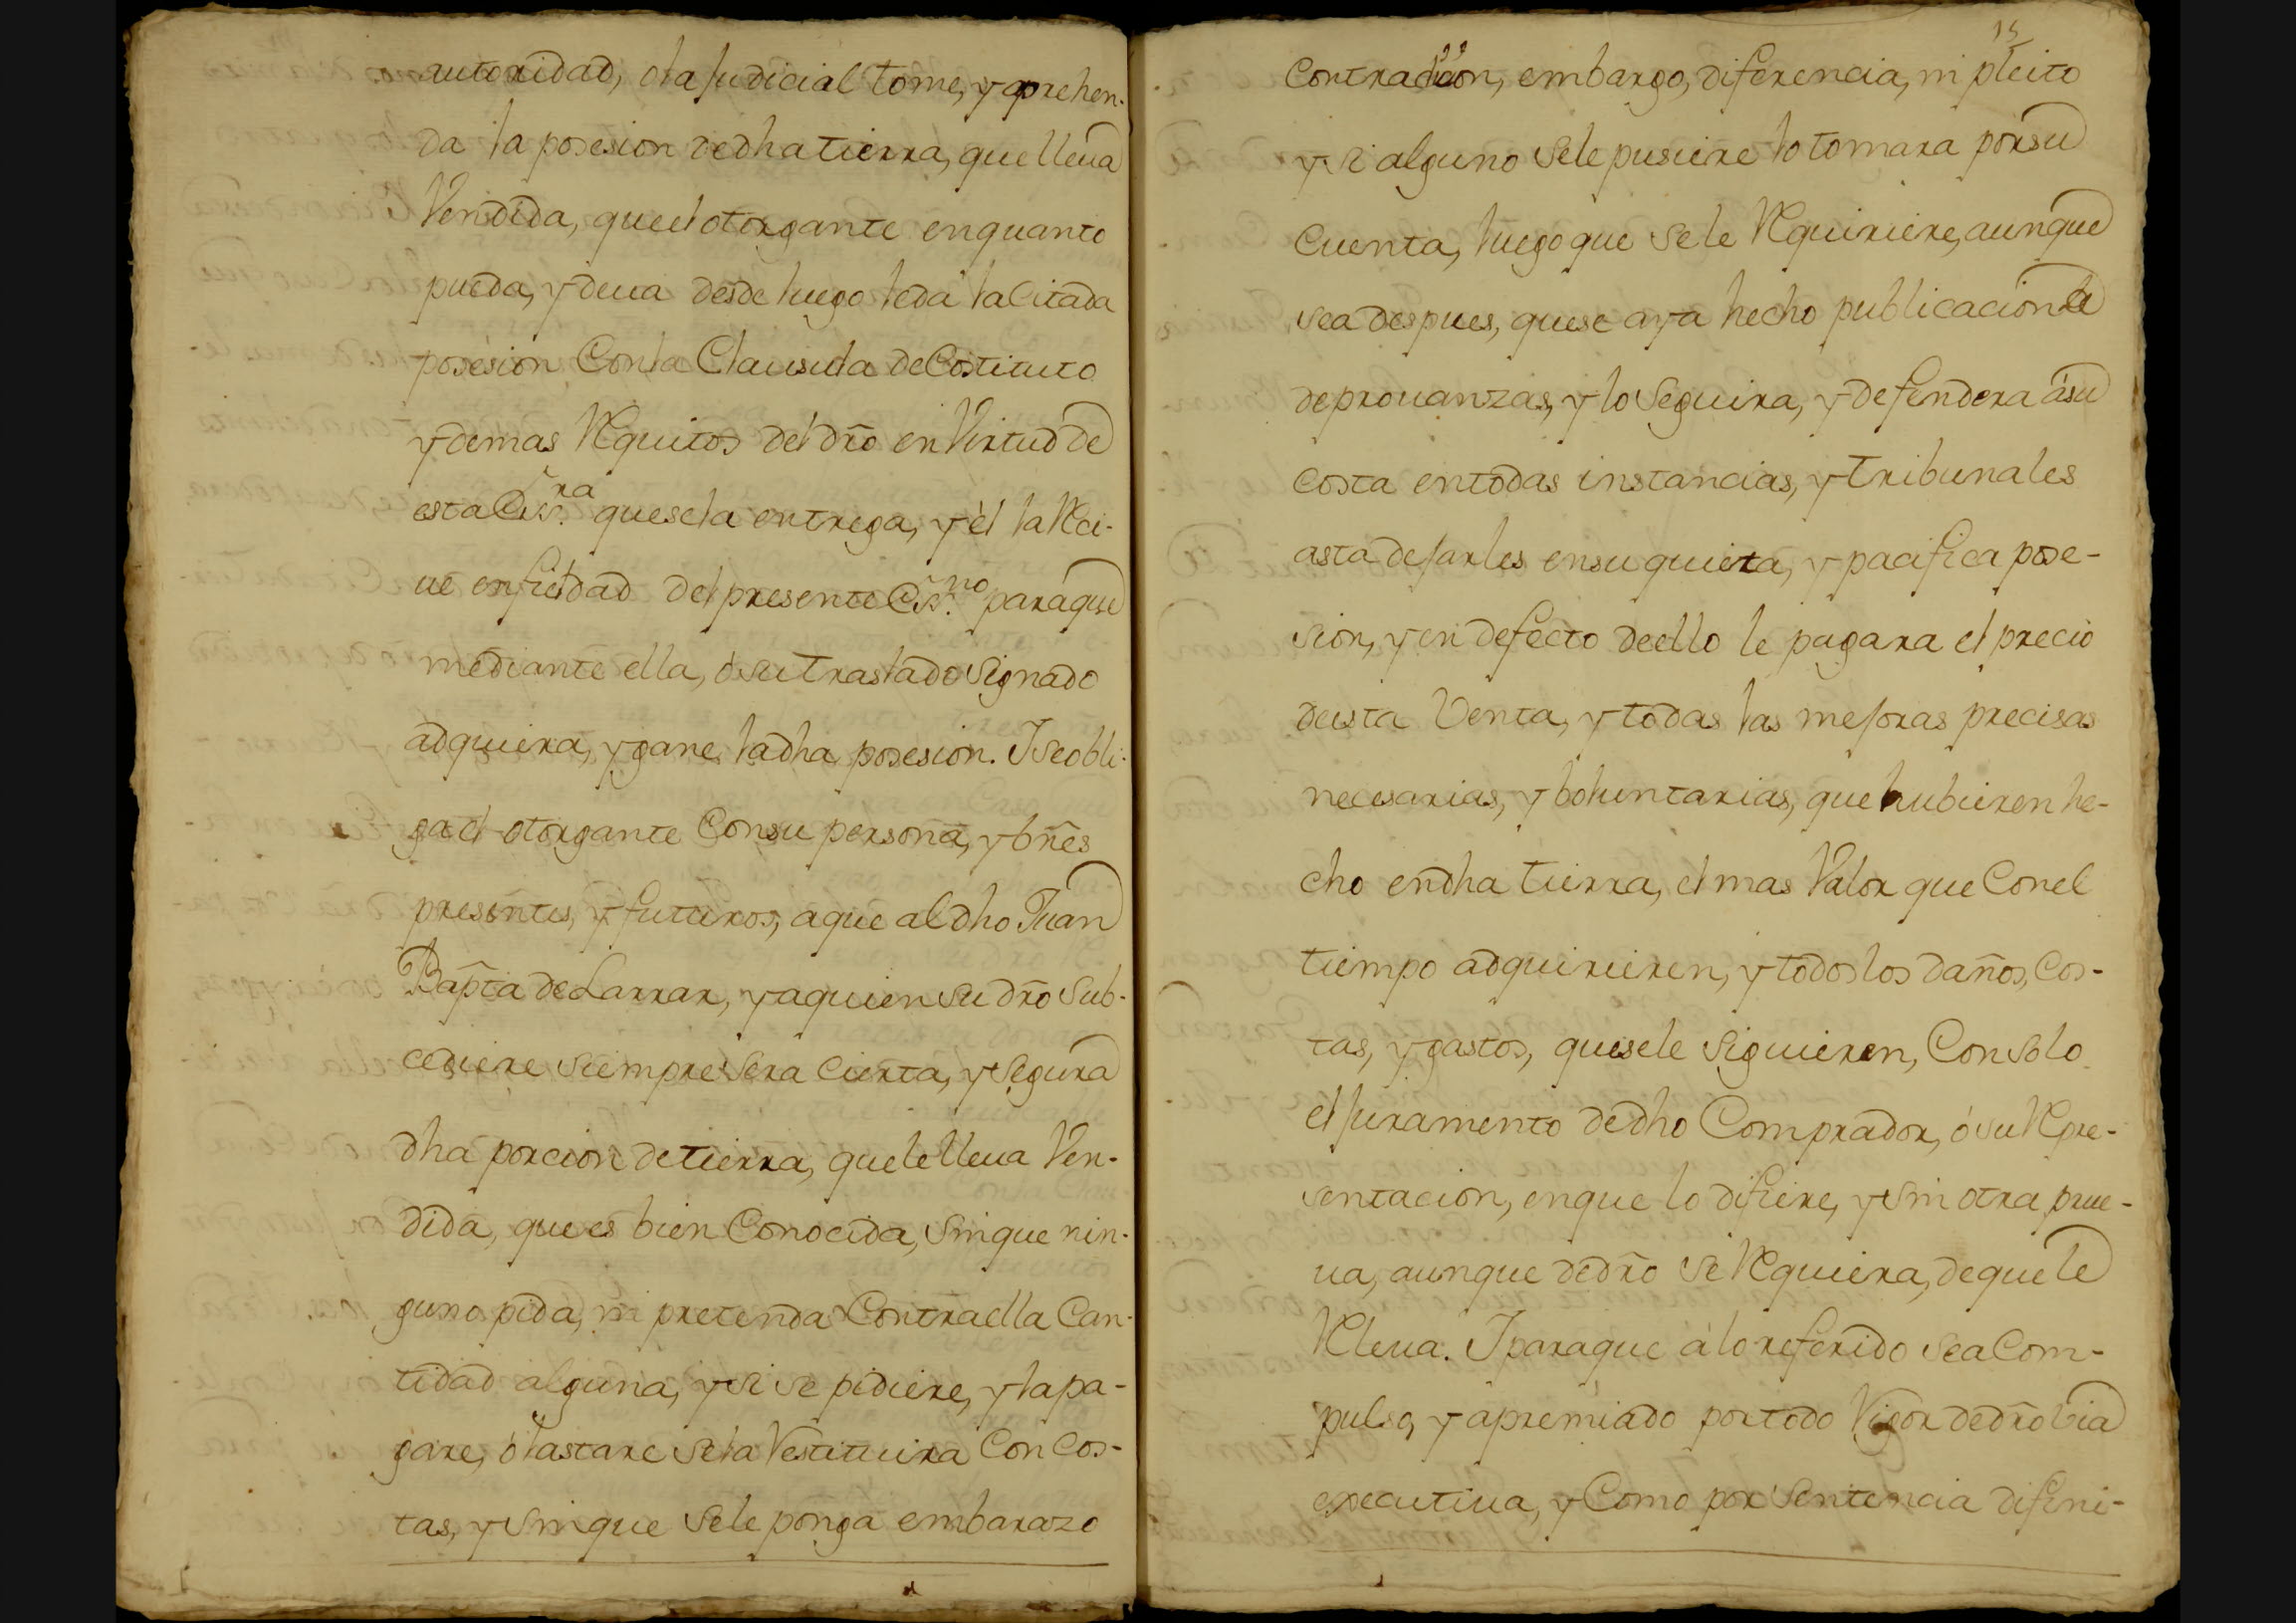 autoridad, ola Judicial tome, y aprehen-
da la posesion dedha tierra, que lleua
Vendida, que el otorgante enquanto
pueda, y deua desde luego leda la Citada
posesion Con la Clausula de Costituto
y demas Requitos del dr̃o en Virtud de
esta Esr.ra que sela entrega, y él la Reci-
ue enfieldad del presente Esr.no paraque
mediante ella, ó su traslado Signado
adquiera, y gane ladha posesion. I se obli-
ga el otorgante Consu persona, y bñes
presentes, y futuros, aque aldho Juan
Bap̃ta de Larrar, y aquien su dr̃o Sub-
cediere siempre sera Cierta, y Segura
dha porcion de tierra, que le lleua Ven-
dida, que es bien Conocida, sin que nin-
guno pida, ni pretenda Contra ella Can-
tidad alguna, y si se pidiere, y la pa-
gare, ó lastare sela Restituira Con Cos-
tas, y sin que sele ponga embarazo
15
Contradicion, embargo, diferencia, ni pleito
y si alguno sele pusiere lo tomara por su
Cuenta, luego que sele Requiriere, aunque
sea despues, que se aya hecho publicacion de
de prouanzas, y lo Seguira, y defendera á su
Costa entodas instancias, y tribunales
asta deJarles ensu quieta, y pacifica pose-
sion, y en defecto deello le pagara el precio
deesta Venta, y todas las meJoras precisas
necesarias, y boluntarias, que hubieren he-
cho endha tierra, el mas Valor que Conel
tiempo adquirieren, y todos los daños, Cos-
tas, y gastos, que sele Siguieren, Con Solo
el Juramento dedho Comprador, ó su Repre-
sentacion, enque lo difiere, y sin otra prue-
ua, aunque dedr̃o se Requiera, deque le
Releua. I paraque a lo referido sea Com-
pulso, y apremiado por todo Vigor dedr̃o Via
executiua, y Como por Sentencia difini-